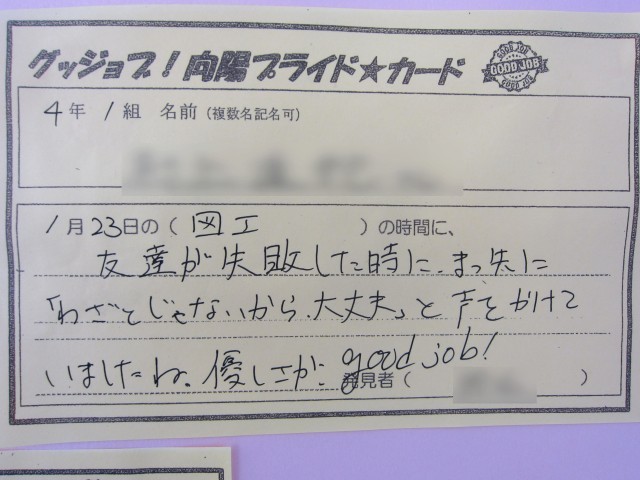 グッジョブ！向陽プライド★カード
GOOD JOB
GOOD JOB
GOOD JOB
4年 1組 名前（複数名記名可）
1月23日の（ 図工 ）の時間に、
友達が失敗した時に、まっ先に
「わざとじゃないから、大丈夫」と声をかけて
いましたね。優しさが、good job!
発見者（ ）